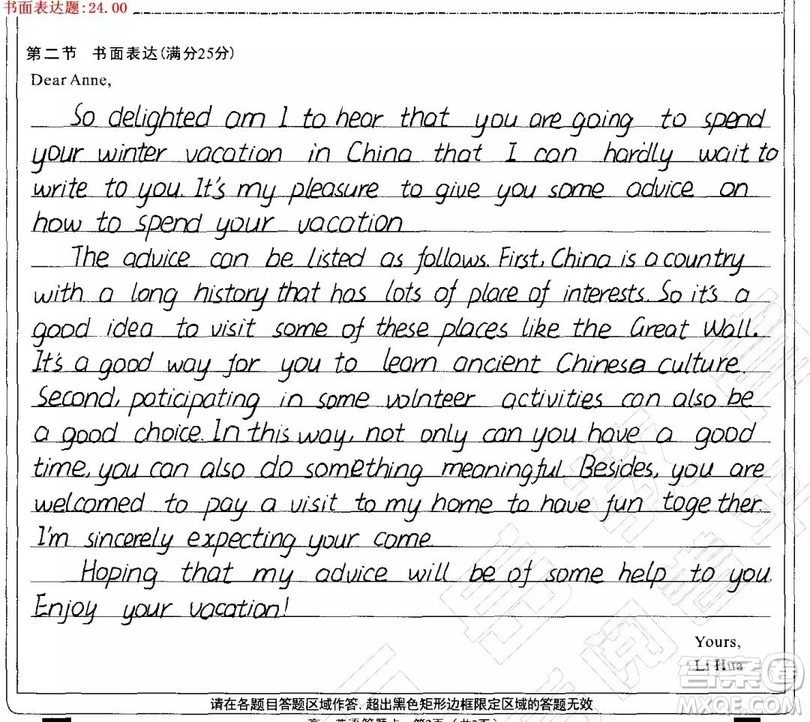 书面表达题:24.00
第二节 书面表达(满分25分)
Dear Anne,
So delighted am I to hear that you are going to spend
your winter vacation in China that I can hardly wait to
write to you. It's my pleasure to give you some advice on
how to spend your vacation
The advice can be listed as follows. First, China is a country
with a long history that has lots of place of interests. So it's a
good idea to visit some of these places like the Great Wall.
It's a good way for you to learn ancient Chinese culture.
Second, paticipating in some volnteer activities can also be
a good choice. In this way, not only can you have a good
time, you can also do something meaningful. Besides, you are
welcomed to pay a visit to my home to have fun together.
I'm sincerely expecting your come.
Hoping that my advice will be of some help to you.
Enjoy your vacation!
Yours,
Li Hua
请在各题目答题区域作答,超出黑色矩形边框限定区域的答题无效
答案圈
MXQE.COM